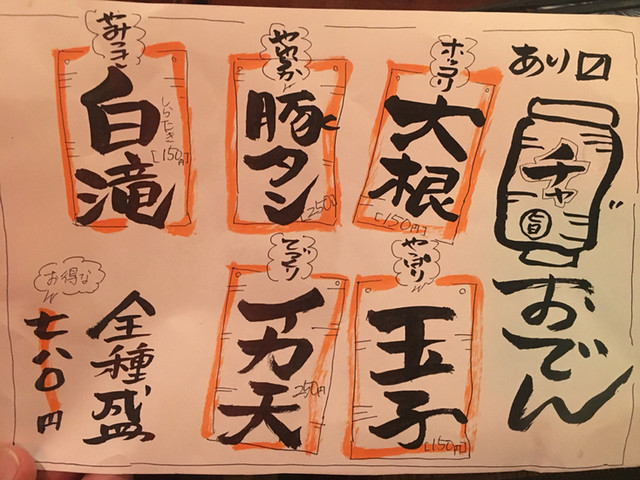 あり〼
チャ
旨
おでん
ホッコリ
大根
150円
やわやわ
豚タン
250円
やみつき
白滝
しらたき
150円
やっぱり
玉子
150円
でっかり
イカ天
250円
全種盛
お得な
七八〇円